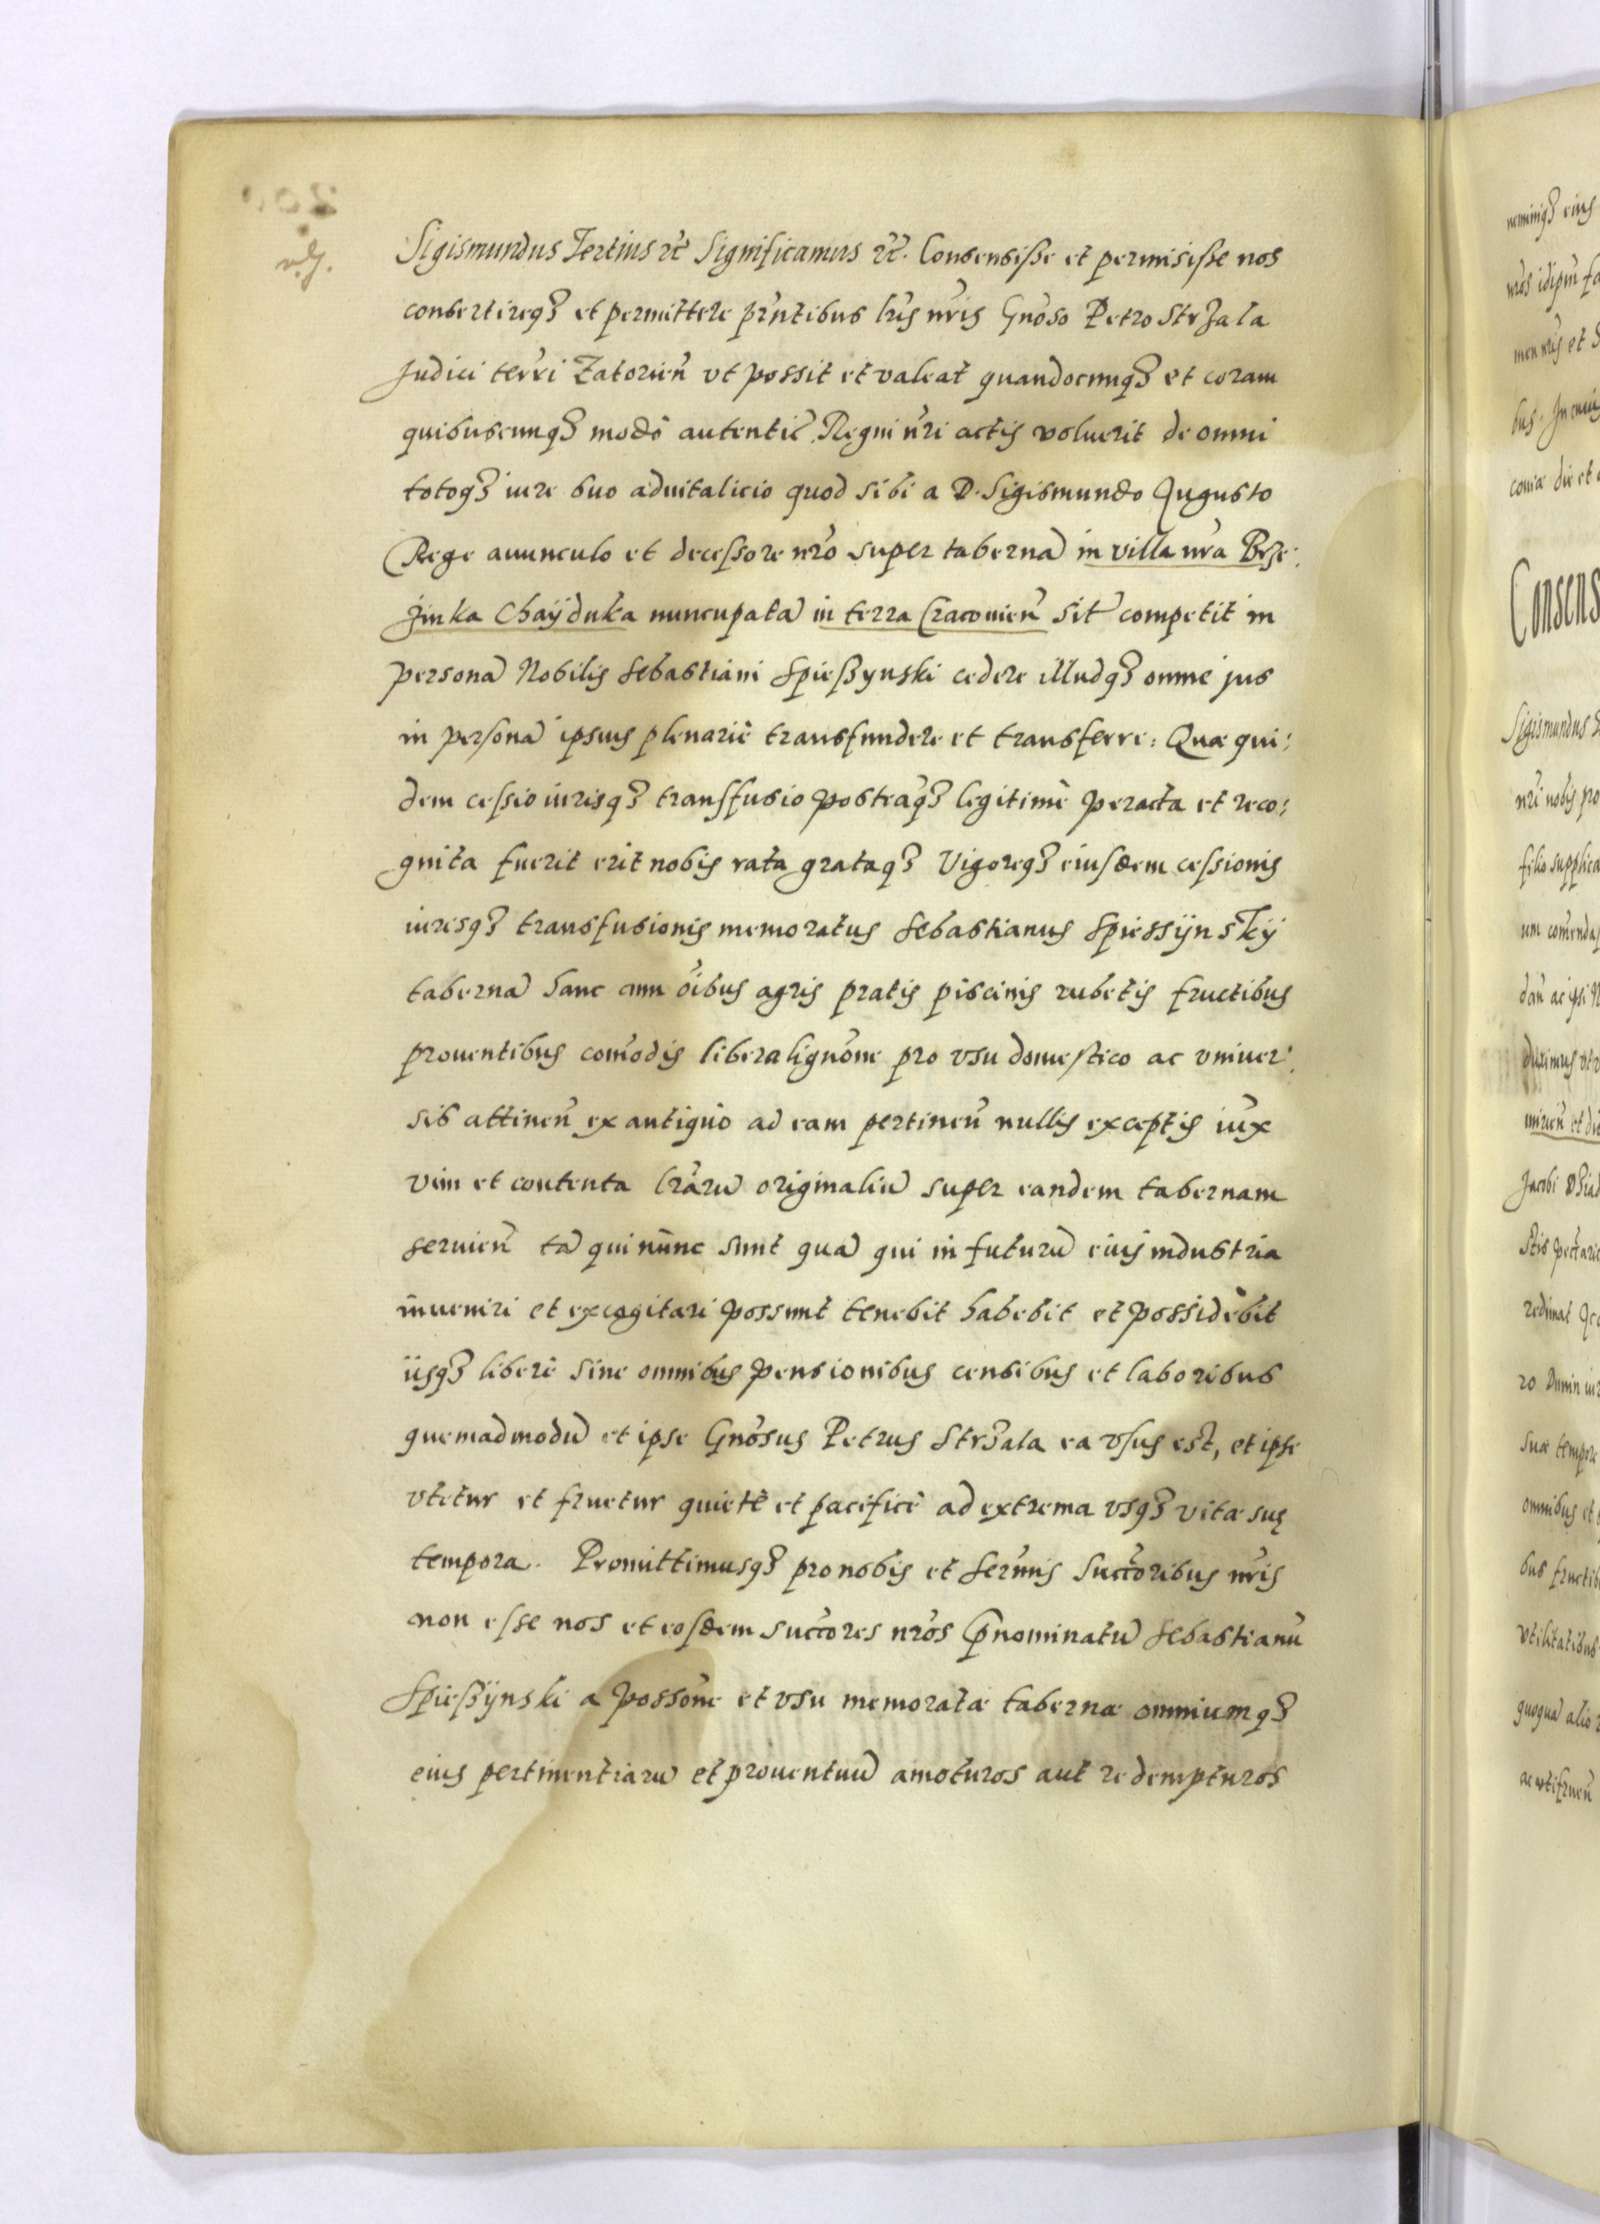 Sigismundus Tertius etc Significamus etc. Consensisse et permisisse nos
consentireq3 et permittere pn̄tibus lr̄is nr̄is Gnōso Petro Strzala
Judici terrī Zatorien̄ vt possit et valeat quandocunq3 et coram
quibuscunq3 modo autentic̄ Regni nr̄i actis voluerit de omni
totoq3 iure suo aduitalicio quod sibi a D. Sigismundo Augusto
Rege auunculo et decessore nr̄o super tabernā in villa nr̄a Brze:
zinka Chayduka nuncupatā in terra Cracouien̄ sit̄ competit in
personā Nobilis Sebastiani Spießynski cedere illudq3 omne jus
in personā ipsius plenariè transfundere et transferre: Quæ qui:
dem cessio iurisq3 transfusio postea q3 legitimè peracta et reco:
gnita fuerit erit nobis rata grataq3 Vigoreq3 eiusdem cessionis
iurisq3 transfusionis memoratus Sebastianus Spiessÿnskÿ
tabernā hanc cum oībus agris pratis piscinis rubetis fructibus
prouentibus com̄odis libera lignōne pro vsu domestico ac vniuer:
sis attinen̄ ex antiquo ad eam pertinen̄ nullis exceptis iux̄
vim et contenta lr̄arū originaliū super eandem tabernam
seruien̄ tā qui nunc sunt quā qui in futurū eius industria
inueniri et excogitari possunt tenebit habebit et possidebit
iisq3 liberè sine omnibus pensionibus censibus et laboribus
quemadmodū et ipse Gnōsus Petrus Strzala ea vsus est, et ipse
vtetur et fruetur quietè et pacificè ad extrema vsq3 vitæ suę
tempora. Promittimusq3 pro nobis et Serm̄is Succōribus nr̄is
non esse nos et eosdem succōres nr̄os p̄nominatū Sebastianū
Spießÿnski a possōne et vsu memoratæ tabernæ omniumq3
eius pertinentiarū et prouentuū amoturos aut redempturos